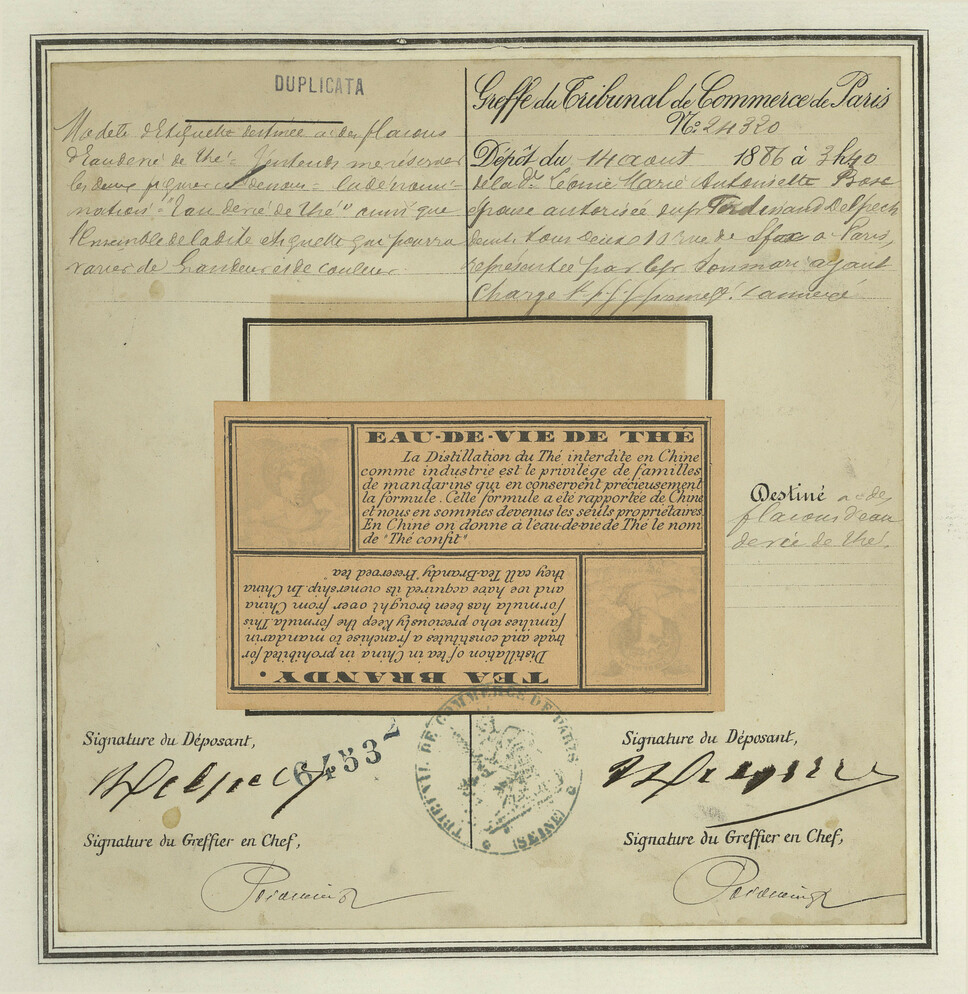 DUPLICATA
Modèle d'Etiquette destinée à des flacons
d'Eau de vie de thé = J'entends me réserver
les deux figures dénom = la dénomi-
nation : "Eau de vie de Thé" ainsi que
l'Ensemble de la dite etiquette qui pourra
varier de Grandeur et de couleur
Greffe du Tribunal de Commerce de Paris
No: 24320
Dépôt du 14 aout 1886 à 3h40
de la De Léonie Marie Antoinette Bosc
épouse autorisée du sr Ferdinand Delpech
demt tous deux rue de Sfax à Paris,
représentée par le sr ayant
Charge
EAU-DE-VIE DE THÉ
La Distillation du Thé interdite en Chine
comme industrie est le privilége de familles
de mandarins qui en conservent précieusement
la formule. Cette formule a été rapportée de Chine
et nous en sommes devenus les seuls propriétaires.
En Chine on donne à l'eau-de-vie de Thé le nom
de "Thé confit"
TEA BRANDY.
Distillation of tea in China in prohibited for
trade and constitutes a franchise to mandarin
families who preciously keep the formula. This
formula has been brought over from China
and we have acquired its ownership. In China
they call Tea-Brandy "Preserved tea"
Destiné à des
flacons d'eau
de vie de thé.
Signature du Déposant,
64532
Delpech
Signature du Greffier en Chef,
TRIBUNAL DE COMMERCE DE PARIS
(SEINE)
Signature du Déposant,
Signature du Greffier en Chef,